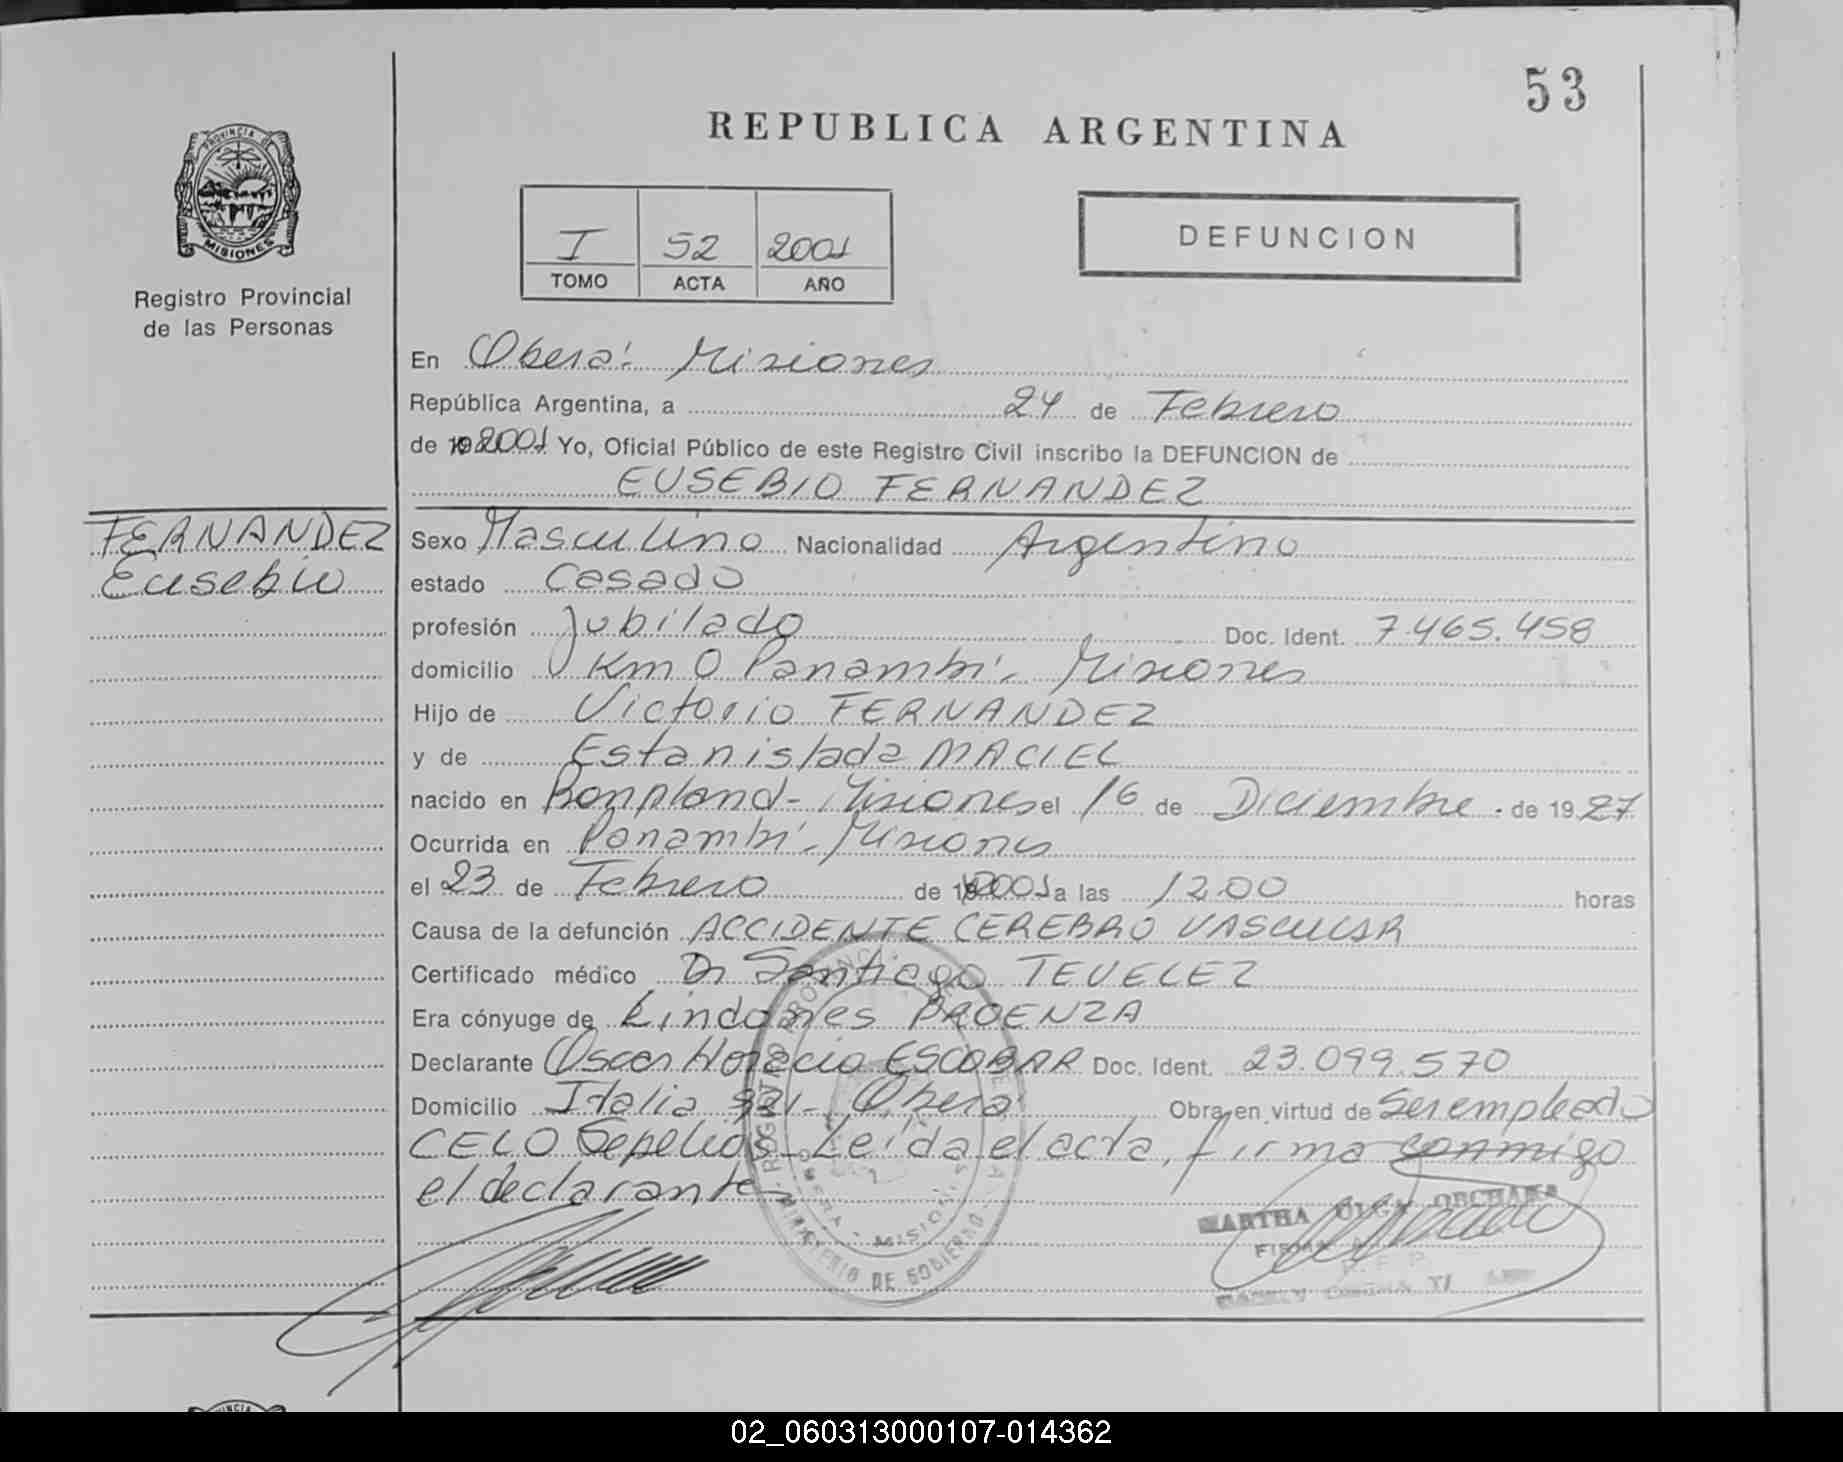 53
REPUBLICA ARGENTINA
PROVINCIA DE
MISIONES
Registro Provincial
de las Personas
I 52 2001
TOMO ACTA AÑO
DEFUNCION
En Oberá: Misiones
República Argentina, a 24 de Febrero
de 19 2001 Yo, Oficial Público de este Registro Civil inscribo la DEFUNCION de
EUSEBIO FERNANDEZ
FERNANDEZ
Eusebio
Sexo Masculino Nacionalidad Argentino
estado Casado
profesión Jubilado Doc. Ident. 7.465.458
domicilio Km 0 Panambí - Misiones
Hijo de Victorio FERNANDEZ
y de Estanislada MACIEL
nacido en Bonpland - Misiones el 16 de Diciembre. de 19 27
Ocurrida en Panambí - Misiones
el 23 de Febrero de 19 2001 a las 12.00 horas
Causa de la defunción ACCIDENTE CEREBRO VASCULAR
Certificado médico Dr Santiago TEVELEZ
Era cónyuge de Lindomes PROENZA
Declarante Oscar Horacio ESCOBAR Doc. Ident. 23.099.570
Domicilio Italia - Oberá Obra en virtud de Ser empleado
CELO Sepelios - Leída el acta, firma conmigo
el declarante -
REGISTRO PROVINCIAL DE LAS
MINISTERIO DE GOBIERNO
OBERA - MISIONES
MARTHA OLGA
02_060313000107-014362